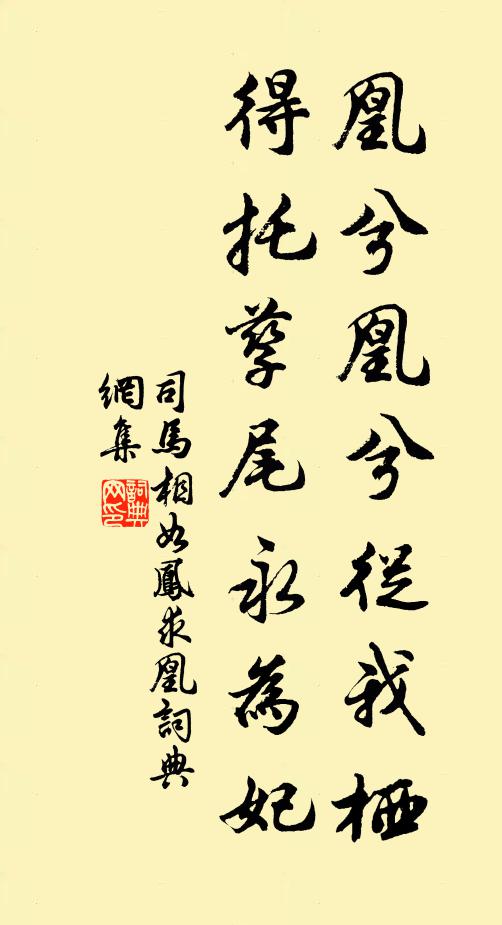 凰兮凰兮從我栖
得托孳尾永為妃
司馬相如鳳求凰詞典
網集
詞典
網印